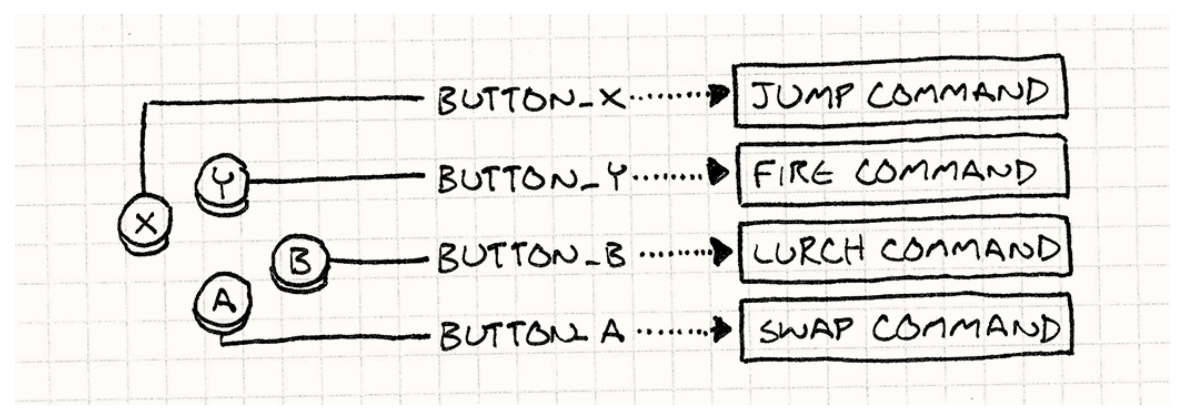 BUTTON_X JUMP COMMAND
Y BUTTON_Y FIRE COMMAND
X
B BUTTON_B LURCH COMMAND
A
BUTTON_A SWAP COMMAND